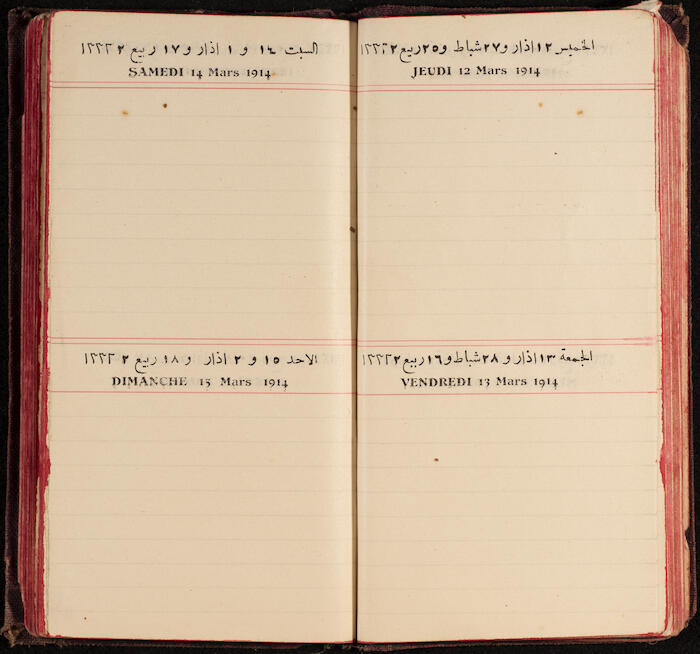 الخميس ١٢ اذار و ٢٧ شباط و ٢٥ ربيع ٢ ١٣٣٢
JEUDI 12 Mars 1914
الجمعة ١٣ اذار و ٢٨ شباط و ١٦ ربيع ٢ ١٣٣٢
VENDREDI 13 Mars 1914
السبت ١٤ و ١ اذار و ١٧ ربيع ٢ ١٣٣٢
SAMEDI 14 Mars 1914
الاحد ١٥ و ٢ اذار و ١٨ ربيع ٢ ١٣٣٢
DIMANCHE 15 Mars 1914